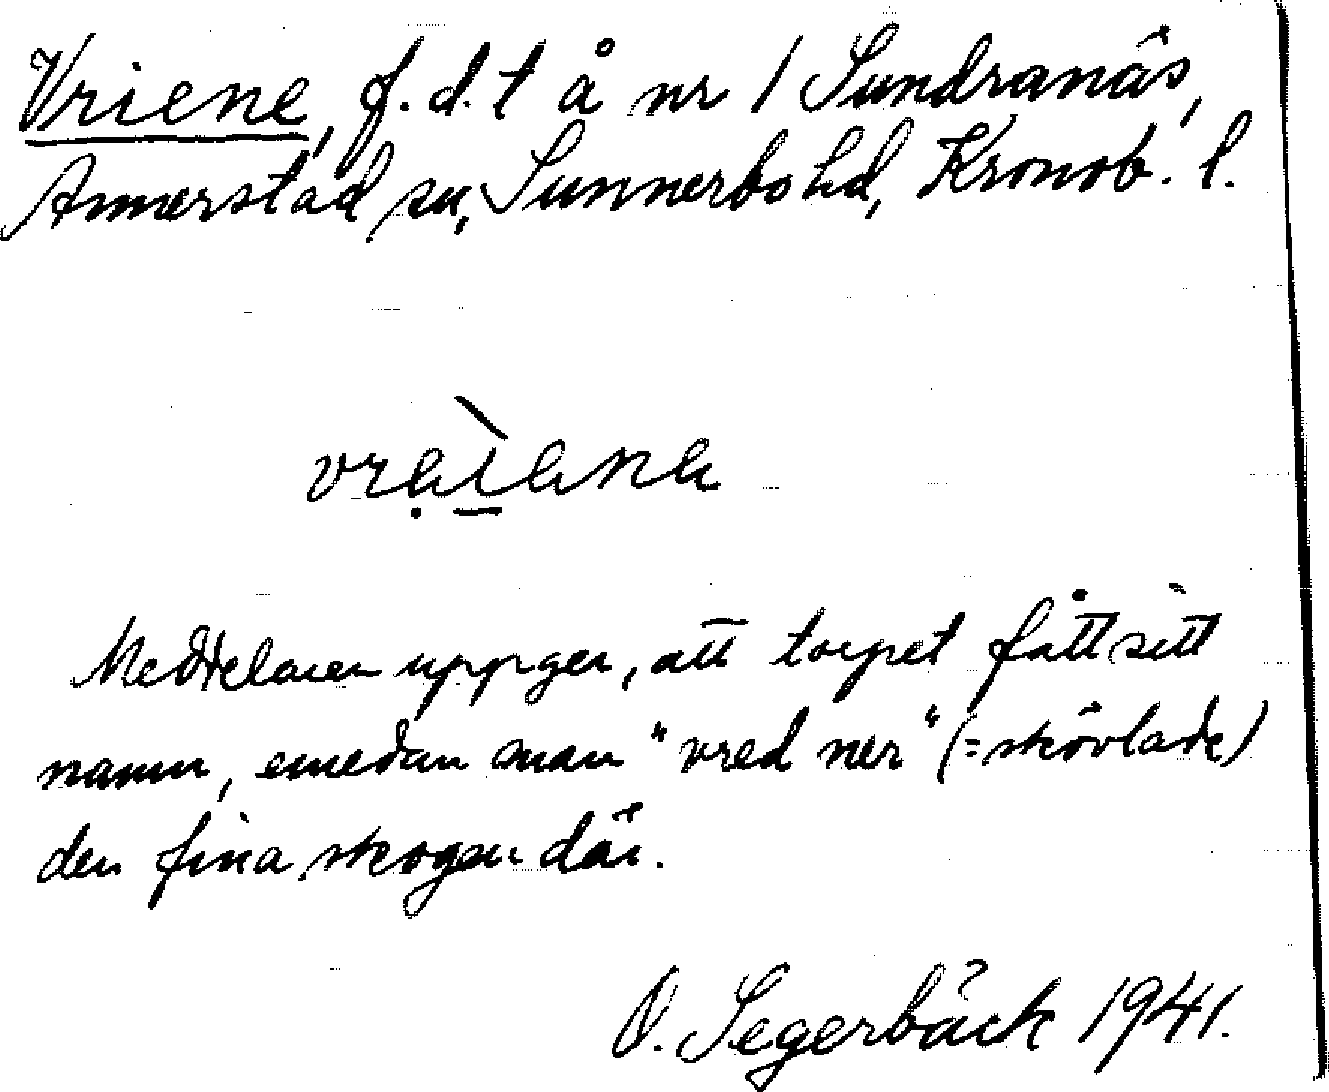 Vriene, f.d. t å nr 1 Sundranäs,
Annerstad sn, Sunnerbo hd, Kronob. l.
Meddelaren uppger, att torpet fått sitt
namn, emedan man "vred ner" (=skövlade)
den fina skogen där.
O. Segerbäck 1941.